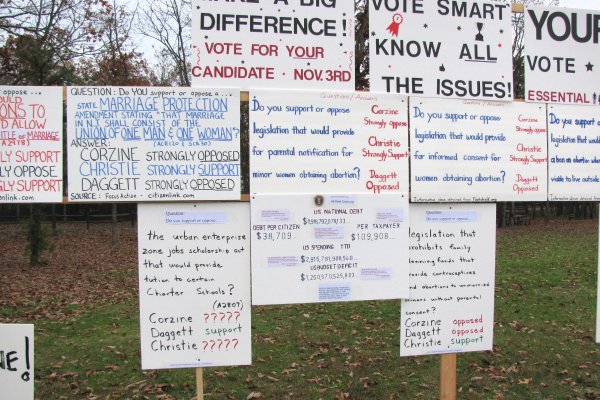 MAKE A BIG
DIFFERENCE!
VOTE FOR YOUR
CANDIDATE - NOV. 3RD
VOTE SMART
KNOW ALL
THE ISSUES!
YOUR
VOTE
ESSENTIAL
support or oppose a ...
TO
ALLOW
TITLE OF MARRIAGE
SUPPORT
OPPOSE
SUPPORT
QUESTION: DO YOU support or oppose a ...
STATE MARRIAGE PROTECTION
AMENDMENT STATING "THAT MARRIAGE
IN N.J. SHALL CONSIST OF THE
UNION OF ONE MAN & ONE WOMAN"?
ANSWER:
CORZINE STRONGLY OPPOSED
CHRISTIE STRONGLY SUPPORT
DAGGETT STRONGLY OPPOSED
SOURCE: citizenlink.com
Questions/Answers
Do you support or oppose
legislation that would provide
for parental notification for
minor women obtaining abortion?
Corzine
Strongly oppose
Christie
Strongly Support
Daggett
Opposed
Do you support or oppose
legislation that would provide
for informed consent for
women obtaining abortion?
Corzine
Strongly opposed
Christie
Strongly support
Daggett
opposed
Do you support or
US NATIONAL DEBT
DEBT PER CITIZEN
$38,709
PER TAXPAYER
$109,908
US SPENDING YTD
US BUDGET DEFICIT
Question:
Do you support or oppose...
the urban enterprise
zone jobs scholarship act
that would provide
tuition to certain
Charter Schools?
Corzine ?????
Daggett support
Christie ?????
Question:
Do you support or oppose...
legislation that
prohibits family
planning funds that
provide contraceptives
and abortions to unmarried
minors without parental
consent?
Corzine opposed
Daggett opposed
Christie support
NE!